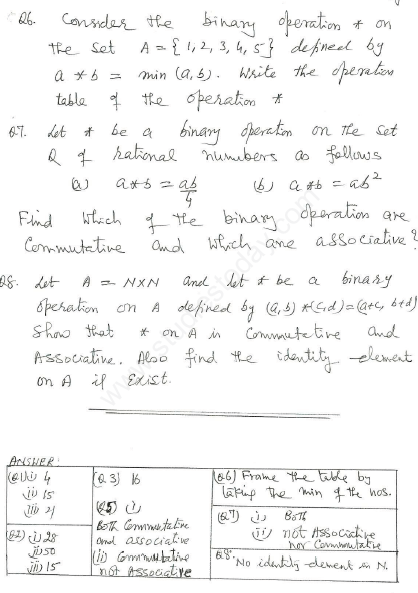 Q6. Consider the binary operation * on
the set A = {1, 2, 3, 4, 5} defined by
a * b = min (a, b). Write the operation
table of the operation *
Q7. Let * be a binary operation on the set
Q of rational numbers as follows
(a) a*b = ab/4 (b) a*b = ab²
Find which of the binary operation are
Commutative and which are associative?
Q8. Let A = N×N and let * be a binary
operation on A defined by (a, b) *(c,d) = (a+c, b+d)
Show that * on A is Commutative and
Associative. Also find the identity element
on A if exist.
ANSWER:
(Q1) i) 4
ii) 15
iii) 21
Q2) i) 28
ii) 50
iii) 15
(Q 3) 16
Q5) (i)
Both Commutative
and associative
(ii) Commutative
not Associative
(Q6) Frame the table by
taking the min of the nos.
(Q7) i) Both
ii) not Associative
nor Commutative
Q8. No identity element in N.